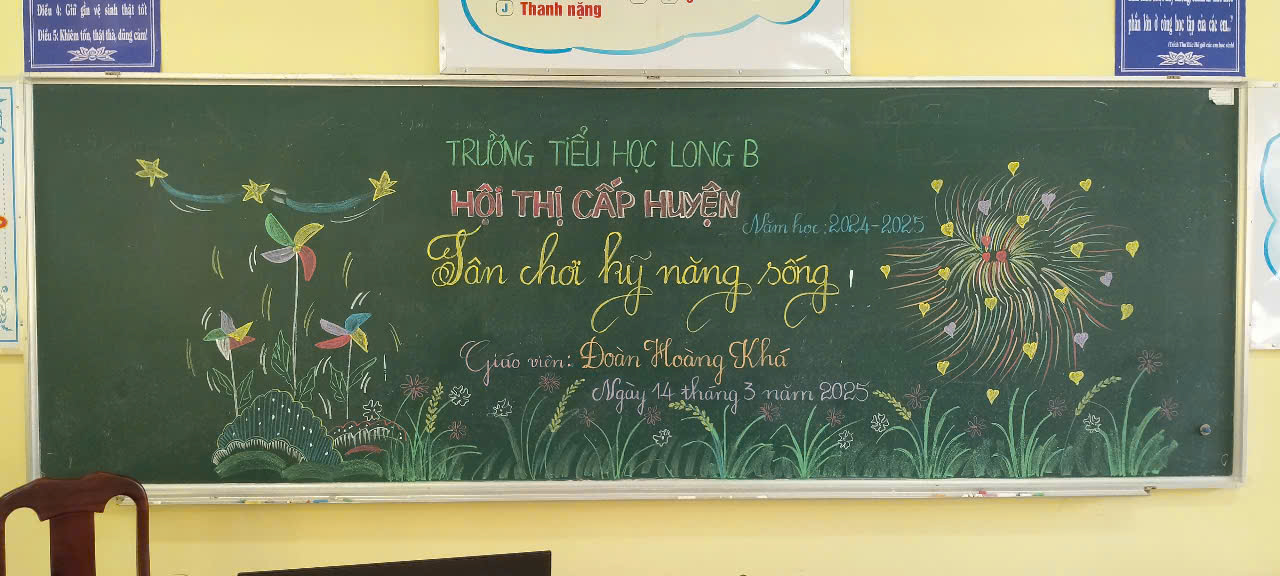 Điều 4: Giữ gìn vệ sinh thật tốt
Điều 5: Khiêm tốn, thật thà, dũng cảm!
J Thanh nặng
phần lớn ở công học tập của các em..."
TRƯỜNG TIỂU HỌC LONG B
HỘI THỊ CẤP HUYỆN
Năm học: 2024-2025
Sân chơi kỹ năng sống
Giáo viên: Đoàn Hoàng Khá
Ngày 14 tháng 3 năm 2025